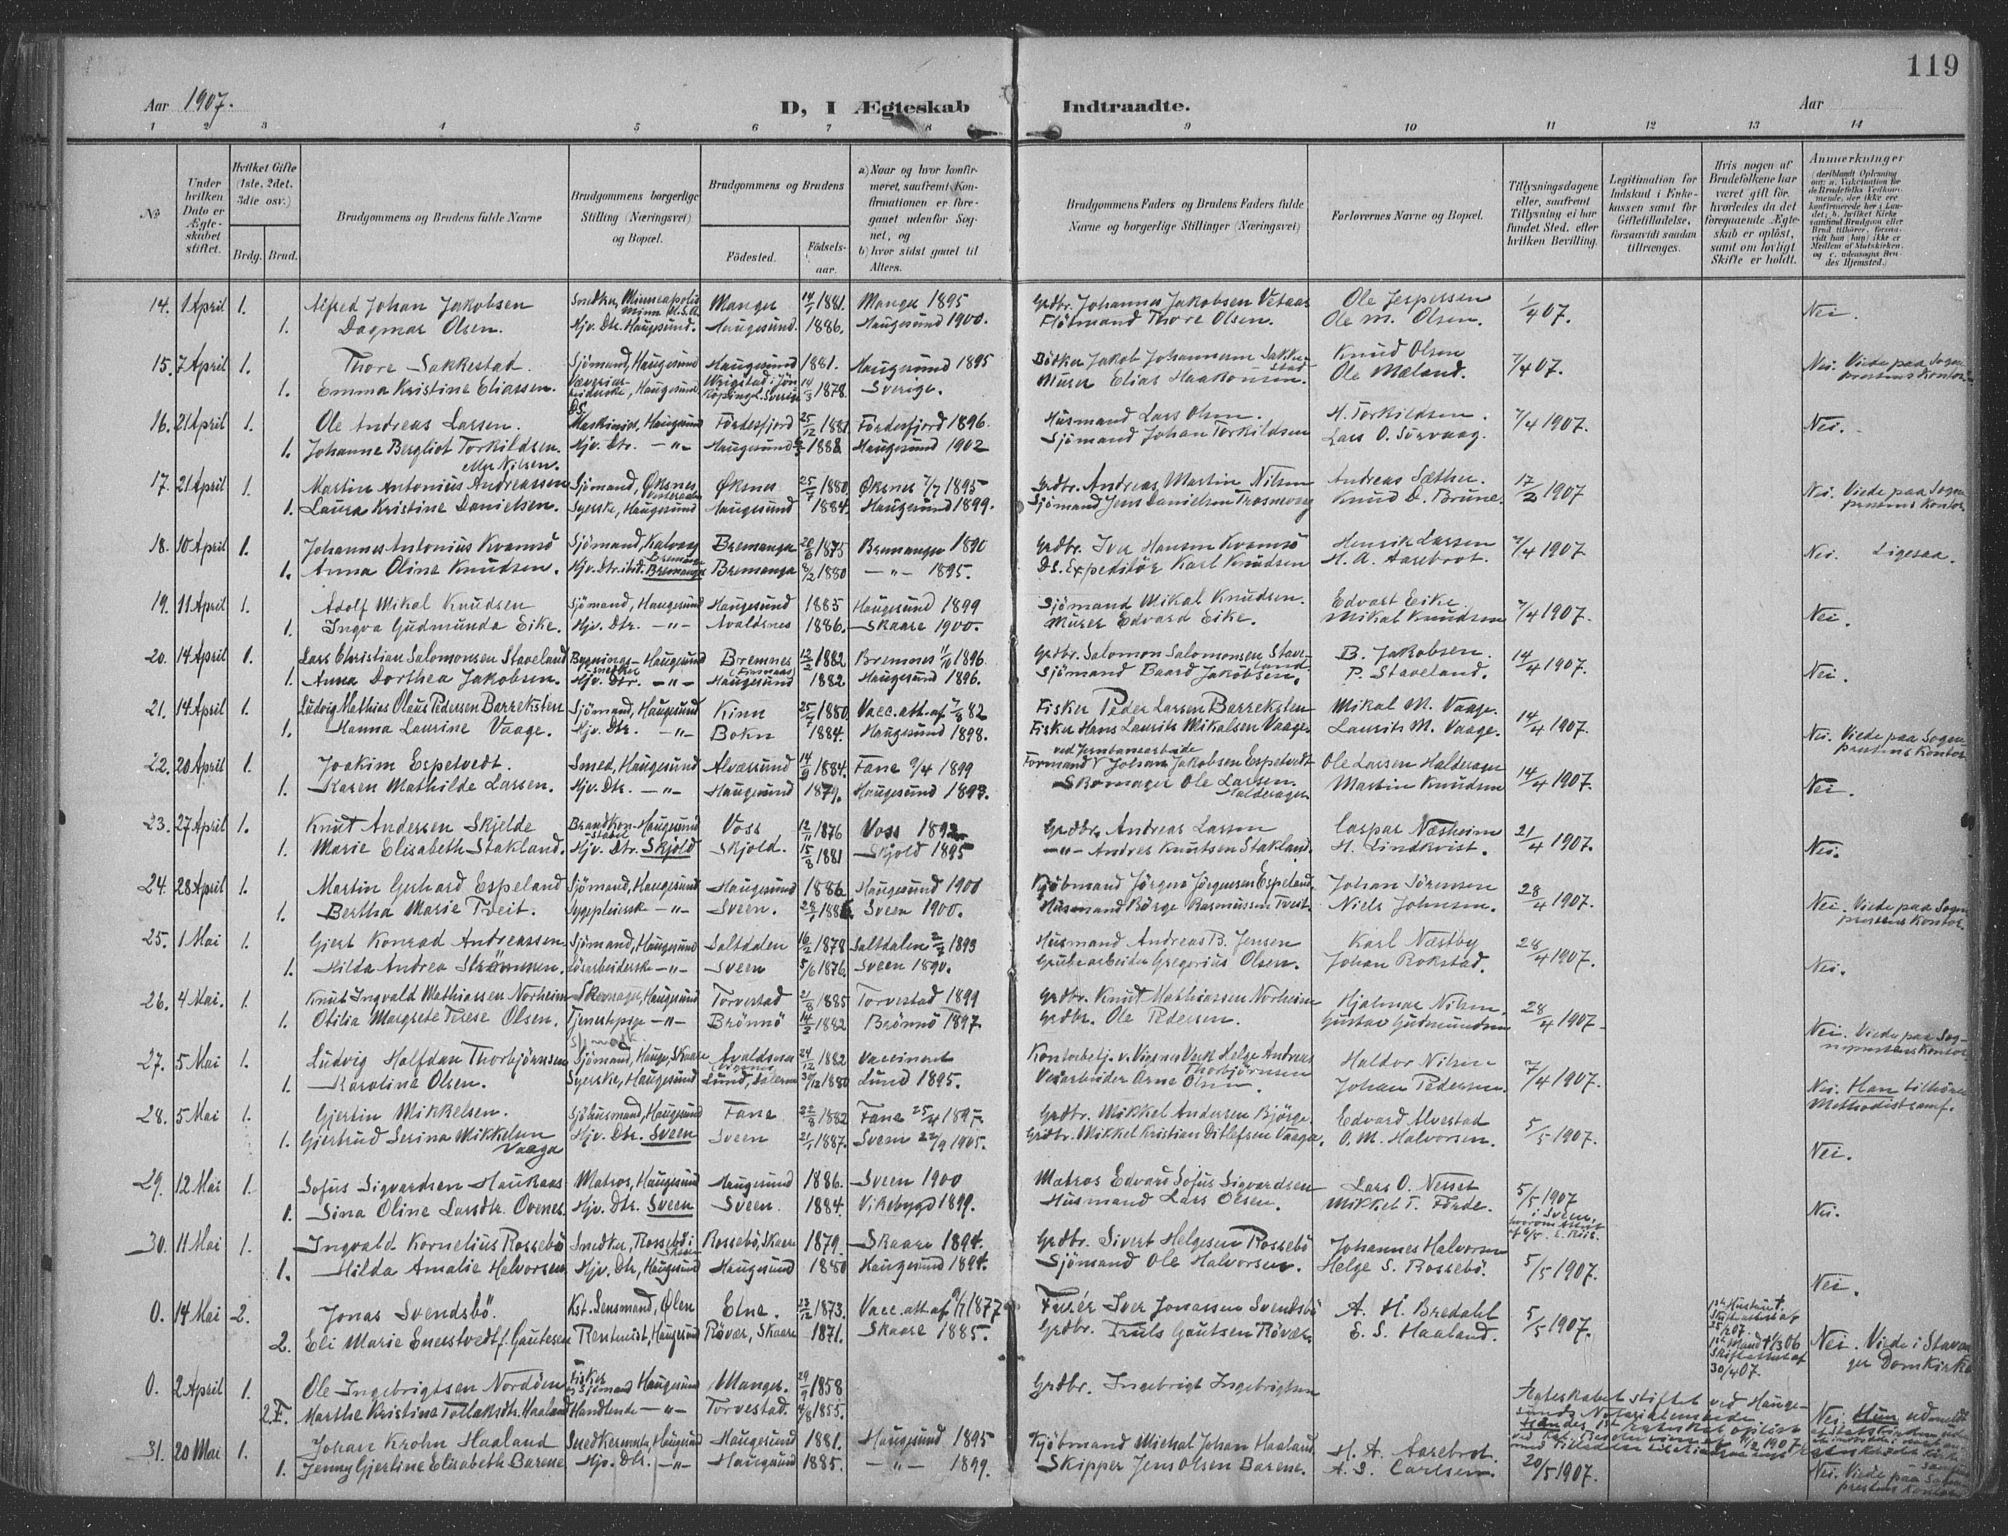 119
Aar 1907.
D, I Ægteskab Indtraadte.
Aar
1 2 3 4 5 6 7 8 9 10 11 12 13 14
No
Under hvilken Dato er Ægteskabet stiftet.
Hvilket Gifte (1ste, 2det, 3die osv.)
Brdg. Brud.
Brudgommens og Brudens fulde Navne
Brudgommens borgerlige Stilling (Næringsvei) og Bopæl.
Brudgommens og Brudens
Födested.
Födselsaar.
a) Naar og hvor konfirmeret, saafremt Konfirmationen er foregaaet udenfor Sognet, og
b) hvor sidst gaaet til Alters.
Brudgommens Faders og Brudens Faders fulde Navne og borgerlige Stillinger (Næringsvei)
Forlovernes Navne og Bopæl.
Tillysningsdagene eller, saafremt Tillysning ei har fundet Sted, efter hvilken Bevilling.
Legitimation for Indskud i Enkekassen samt for Giftetilladelse, forsaavidt saadan tiltrænges.
Hvis nogen af Brudefolkene har været gift för, hvorledes da det foregaaende Ægteskab er oplöst, samt om lovligt Skifte er holdt.
Anmerkninger
14. 1 April 1. Alfred Johan Jakobsen Snedker, Minneapolis Minn. U.S.A. Manger 14/1 1881. Manger 1895 Grdbr. Johannes Jakobsen Vetaas Ole Jespersen 1/4 07. Nei.
1. Dagmar Olsen. Hjv. Dtr. Haugesund. Haugesund. 1886. Haugesund 1900. Flötmand Thore Olsen. Ole M. Olsen.
15. 7 April 1. Thore Sakkestad. Sjömand, Haugesund Haugesund 1881. Haugesund 1895 Bötker Jakob Johannesen Sakkestad Knud Olsen 7/4 07. Nei. Viede paa Sogneprestens Kontor
1. Emma Kristine Eliassen. Haugesund Sverige 14/3 1878. Sverige. Murer Elias Haakonsen Ole Mæland.
16. 21 April 1. Ole Andreas Larsen. DS. Maskinist, Haugesund Fördesfjord 25/12 1881 Fördesfjord 1896. Husmand Lars Olsen. H. Torkildsen. 7/4 1907. Nei.
1. Johanne Bergliot Torkildsen. Hjv. Dtr. -"- Haugesund 1888 Haugesund 1902 Sjömand Johan Torkildsen Lars O. Sörvaag.
17. 21 April 1. Martin Antonius Andreassen eller Nilsen. Sjömand, Öksnes Öksnes 25/7 1880 Öksnes 7/7 1895 Grdbr. Andreas Martin Nilsen Andreas Sæther. 17/2 1907 Nei. Viede paa Sogneprestens Kontor
1. Laura Kristine Danielsen. Syerske, Haugesund Haugesund 1884. Haugesund 1899. Sjömand Jens Danielsen Knud D. Brune.
18. 10 April 1. Johannes Antonius Kvamsö Sjömand, Kalvaag Bremanger Bremanger 20/6 1875 Bremanger 1890 Grdbr. Iver Hansen Kvamsö Henrik Larsen 7/4 1907 Nei. Ligesaa.
1. Anna Oline Knudsen. Hjv. Dtr. Bremanger Bremanger 8/2 1880 -"- 1895. DS. Expeditör Karl Knudsen H. A. Aarebrot.
19. 11 April 1. Adolf Mikal Knudsen Sjömand, Haugesund Haugesund 1885 Haugesund 1899 Sjömand Mikal Knudsen. Edvart Eike 7/4 1907. Nei.
1. Ingva Gudmunda Eike. Hjv. Dtr. -"- Avaldsnes 1886. Skaare 1900. Murer Edvard Eike. Mikal Knudsen
20. 14 April 1. Lars Christian Salomonsen Staveland Bygningssnedker Haugesund Bremnes 12/2 1882 Bremnes 11/10 1896. Grdbr. Salomon Salomonsen Staveland B. Jakobsen. 14/4 1907. Nei.
1. Anna Dorthea Jakobsen. Hjv. Dtr. -"- Haugesund 1882 Haugesund 1896. Sjömand Baard Jakobsen. P. Staveland.
21. 14 April 1. Ludvig Mathias Olaus Pedersen Barreksten Sjömand, Haugesund Kinn 25/7 1880. Vacc. att. af 7/8 82 Fisker Peder Larsen Barreksten Mikal M. Vaage. 14/4 1907. Nei. Viede paa Sogneprestens Kontor
1. Hanna Laurine Vaage. Hjv. Dtr. -"- Bokn 1884. Haugesund 1898. Fisker Hans Laurits Mikalsen Vaage Laurits M. Vaage.
22. 20 April 1. Joakim Espetvedt. Smed, Haugesund Alværsund 14/9 1884. Fane 9/4 1899 Formand ved Jernbanearbeide Johan Jakobsen Espetvedt Ole Larsen Halderager 14/4 1907. Nei.
1. Karen Mathilde Larsen. Hjv. Dtr. -"- Haugesund 1879. Haugesund 1893. Skomager Ole Larsen Halderager Martin Knudsen
23. 27 April 1. Knut Andersen Skjelde Brandkonstabel Haugesund Voss 12/11 1876 Voss 1892 Grdbr. Andreas Larsen Caspar Næsheim 21/4 1907. Nei.
1. Marie Elisabeth Stakland. Hjv. Dtr. Skjold Skjold. 15/8 1881 Skjold 1895 -"- Andres Knutsen Stakland. H. Lindkvist.
24. 28 April 1. Martin Gerhard Espeland Sjömand, Haugesund Haugesund 1886 Haugesund 1900 Kjöbmand Jörgen Jörgensen Espeland. Johan Sörensen 28/4 1907. Nei. Viede paa Sogneprestens Kontor
1. Bertha Marie Tveit. Sygepleierske -"- Sveen. Sveen 1900. Husmand Börge Rasmussen Tveit. Niels Johnsen.
25. 1 Mai 1. Gjert Konrad Andreassen Sjömand, Haugesund Saltdalen 16/2 1878 Saltdalen 1893 Husmand Andreas B. Jensen Karl Næstby 28/4 1907. Nei.
1. Hilda Andrea Strömmen. Lösarbeiderske -"- Sveen 5/6 1876. Sveen 1890. Grubearbeider Gregorius Olsen. Johan Rokstad.
26. 4 Mai. 1. Knut Ingvald Mathiassen Norheim Skomager, Haugesund Torvestad 21/8 1885 Torvestad 1899 Grdbr. Knut Mathiassen Norheim Hjalmar Nilsen, 28/4 1907. Nei. Viede paa Sogneprestens Kontor
1. Otilia Margrete Terese Olsen. Tjenestepige -"- Brönnö 14/2 1882 Brönnö 1897. Grdbr. Ole Pedersen. Gustav Gudmundsen
27. 5 Mai 1. Ludvig Halfdan Thorbjörnsen Sjömand, Skaare Avaldsnes 24/12 1882 Vaccineret Helge Andreas Thorbjörnsen Haldor Nilsen 7/4 1907. Nei. Han tilhörer Methodistsamf.
1. Karoline Olsen. Syerske, Haugesund Lund, 30/12 1880 Lund 1895. Arne Olsen Johan Pedersen.
28. 5 Mai 1. Gjertin Mikkelsen. Haugesund Fane 22/8 1882 Fane 25/4 1897. Grdbr. Mikkel Andersen Bjørge. Edvard Alvestad 5/5 1907. Nei.
1. Gjertrud Serina Mikkelsen Vaaga Hjv. Dtr. Sveen Sveen 21/1 1887. Sveen 22/9 1905. Grdbr. Mikkel Kristian Ditlefsen Vaaga. O. M. Halvorsen.
29. 12 Mai 1. Sofus Sigvardsen Haukaas Matros, Haugesund Haugesund 1886. Sveen 1900 Matros Edvard Sofus Sigvardsen Lars O. Nesset 5/5 1907 i Sveen, Nei.
1. Sina Oline Larsdtr. Ovenes Hjv. Dtr. Sveen Sveen. 1884. Vikebygd 1899. Husmand Lars Olsen. Mikkel T. Förde.
30. 11 Mai 1. Ingvald Kornelius Rossebö Snedker, Rossebö i Skaare Rossebö, Skaare 1879. Skaare 1894. Grdbr. Sivert Helgesen Rossebö Johannes Halvorsen 5/5 1907. Nei.
1. Hilda Amalie Halvorsen Hjv. Dtr, Haugesund Haugesund 1880 Haugesund 1894. Sjömand Ole Halvorsen. Helge S. Rossebö.
0. 14 Mai 2. Jonas Svendsbö. Kst. Lensmand, Ölen Etne. 23/12 1873. Vacc. att. af 9/7 1877 Furér Iver Jonassen Svendsbö A. H. Bredahl 5/5 1907. Nei. Viede i Stavanger Domkirke
2. Eli Marie Enerstvedt f. Gautesen Rentenist, Haugesund Rövær, Skaare 1871. Skaare 1885. Grdbr. Truls Gautsen Rövær. E. S. Haaland. 30/4 07.
0. 2 April 1. Ole Ingebrigtsen Nordöen Fisker og Sjömand Haugesund Manger. 29/9 1858 Grdbr. Ingebrigt Ingebrigtsen Ægteskabet stiftet ved Haugesunds Notarialembede
2. F. Marthe Kristine Tollaksdtr. Haaland Handlende -"- Torvestad. 4/8 1855. Nei. Hun udmeldt af Statskirken
31. 20 Mai 1. Johan Krohn Haaland Snedkermester, Haugesund Haugesund 1881. Haugesund 1895 Kjöbmand Michal Johan Haaland H. A. Aarebrot. 20/5 1907. Nei. Viede paa Sogneprestens Kontor
1. Jenny Gjertine Elisabeth Barene. Hjv. Dtr. -"- Haugesund 1885. -"- 1899. Skipper Jens Olsen Barene. A. S. Carlsen.